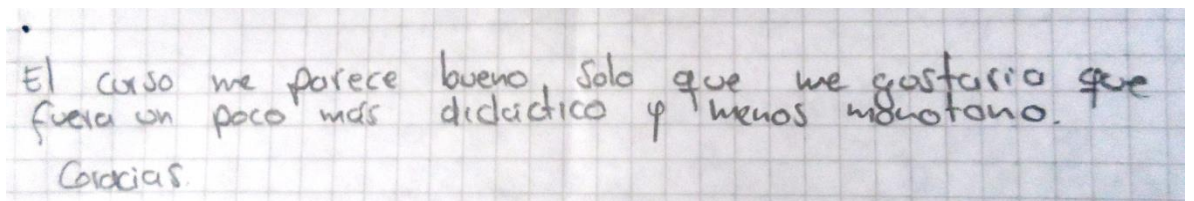 El curso me parece bueno, solo que me gustaria que
fuera un poco más didáctico y menos monotono.
Gracias.